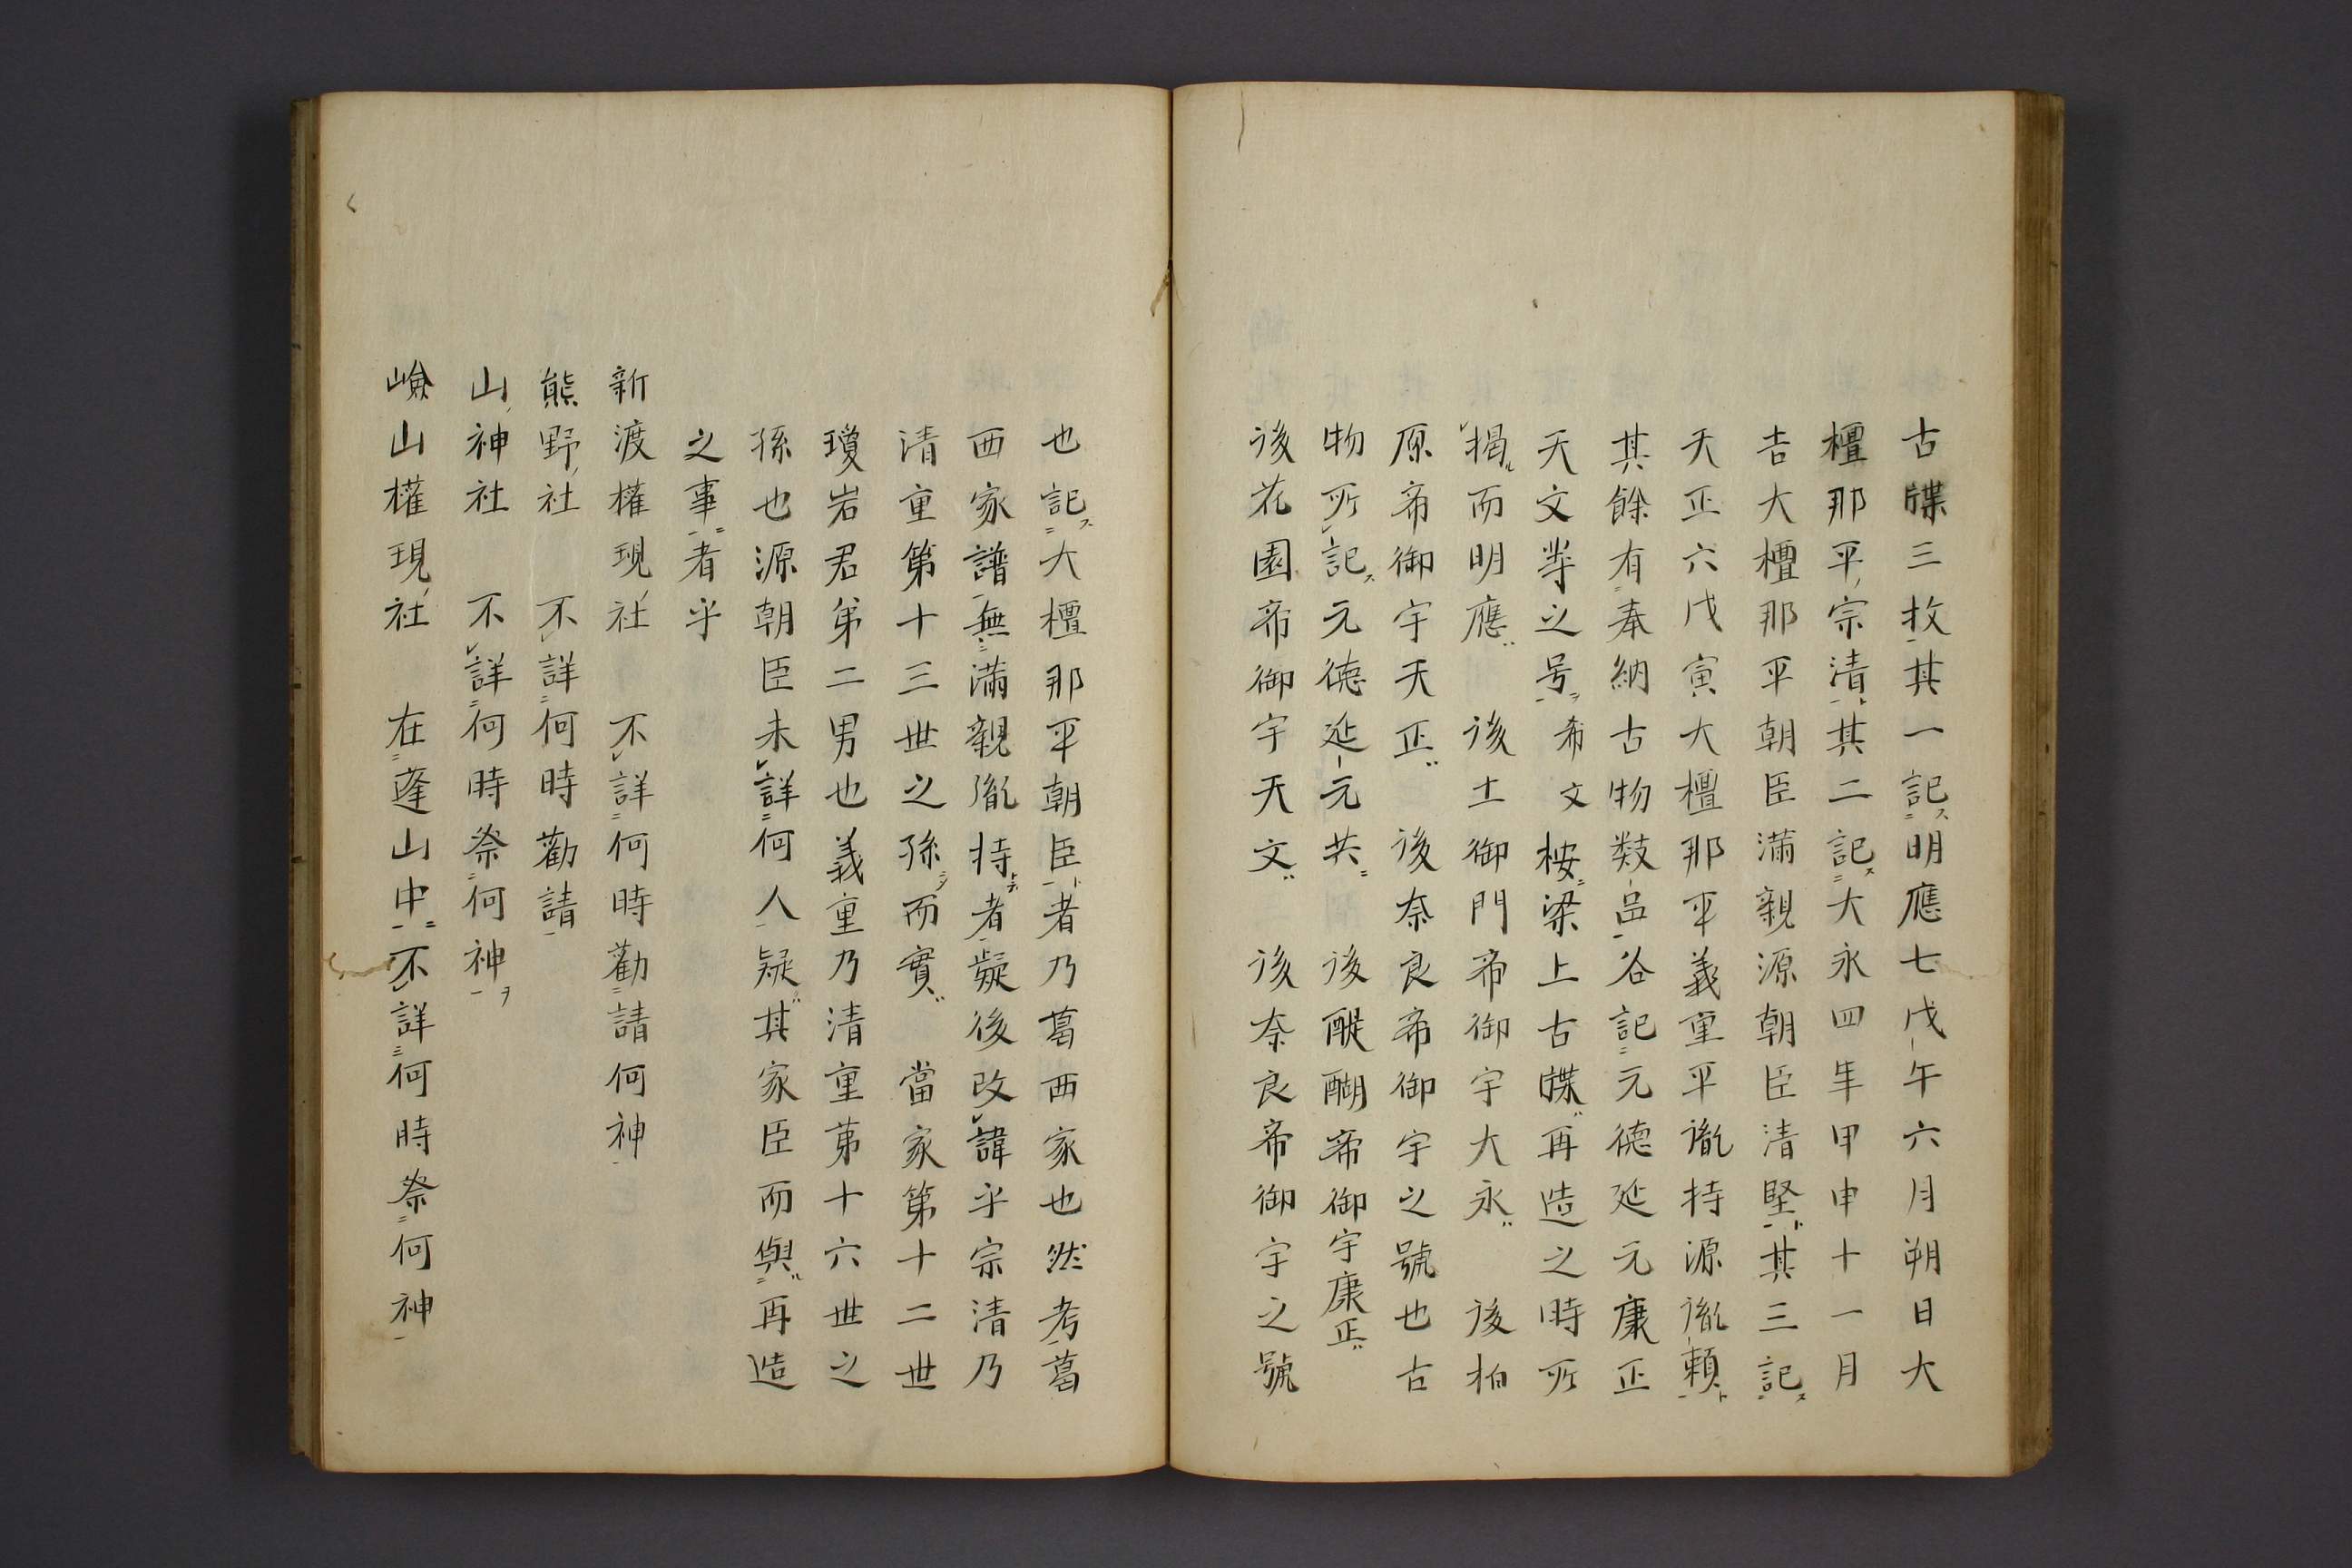 古牒三枚其一記明應七戊午六月朔日大
檀那平宗清其二記大永四年甲申十一月
吉大檀那平朝臣滿親源朝臣清堅其三記
天正六戊寅大檀那平義重平胤持源胤頼
其餘有奉納古物数品谷記元德延元康正
天文䓁之号希文桉梁上古牒再造之時所
揭而明應 後土御門帝御宇大永 後柏
原帝御宇天正 後奈良帝御宇之號也古
物所記元德延元共 後醍醐帝御宇康正
後花園帝御宇天文 後奈良帝御宇之號
也記大檀那平朝臣者乃葛西家也然考葛
西家譜無滿親胤持者疑後改諱乎宗清乃
清重第十三世之孫而實 當家第十二世
瓊岩君第二男也義重乃清重第十六世之
孫也源朝臣未詳何人疑其家臣而與再造
之事者乎
新渡權現社 不詳何時勸請何神
熊野社 不詳何時勸請
山神社 不詳何時祭何神
嶮山權現社 在蓬山中不詳何時祭何神